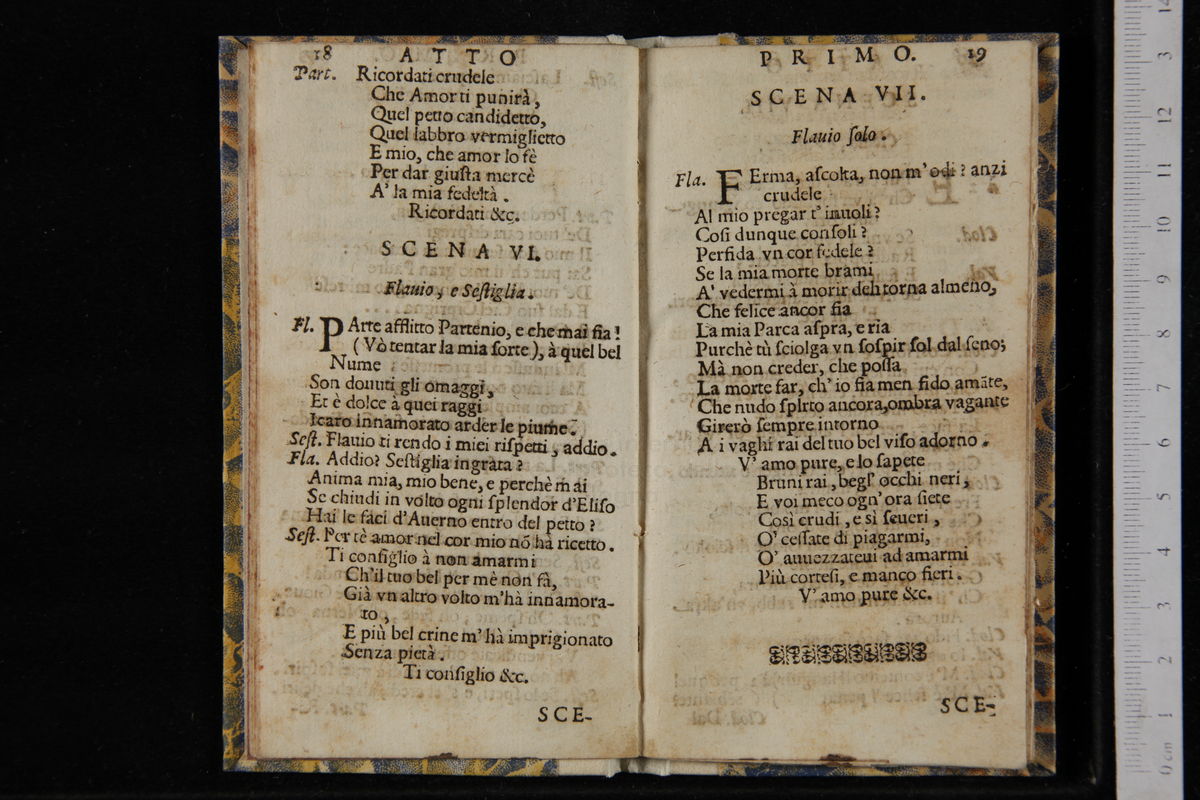 18 ATTO
Part. Ricordati crudele
Che Amor ti punirà,
Quel petto candidetto,
Quel labbro vermiglietto
E mio, che amor lo fè
Per dar giuſta mercè
A' la mia fedeltà.
Ricordati &c.
SCENA VI.
Flauio, e Seſtiglia.
Fl. PArte afflitto Partenio, e che mai fia!
(Vò tentar la mia ſorte), à quel bel
Nume
Son douuti gli omaggi,
Et è dolce à quei raggi
Icaro innamorato arder le piume.
Seſt. Flauio ti rendo i miei riſpetti, addio.
Fla. Addio? Seſtiglia ingrata?
Anima mia, mio bene, e perchè mai
Se chiudi in volto ogni ſplendor d'Eliſo
Hai le faci d'Auerno entro del petto?
Seſt. Per tè amor nel cor mio nõ hà ricetto.
Ti conſiglio à non amarmi
Ch'il tuo bel per mè non fà,
Già vn altro volto m'hà innamora-
to,
E più bel crine m'hà imprigionato
Senza pietà.
Ti conſiglio &c.
SCE-
PRIMO. 19
SCENA VII.
Flauio ſolo.
Fla. FErma, aſcolta, non m'odi? anzi
crudele
Al mio pregar t'inuoli?
Coſi dunque conſoli?
Perfida vn cor fedele?
Se la mia morte brami
A' vedermi à morir deh torna almeno,
Che felice ancor fia
La mia Parca aſpra, e ria
Purchè tù ſciolga vn ſoſpir ſol dal ſeno;
Mà non creder, che poſſa
La morte far, ch'io ſia men fido amãte,
Che nudo ſpirto ancora, ombra vagante
Girerò ſempre intorno
A i vaghi rai del tuo bel viſo adorno.
V'amo pure, e lo ſapete
Bruni rai, begl' occhi neri,
E voi meco ogn'ora ſiete
Così crudi, e sì ſeueri,
O' ceſſate di piagarmi,
O' auuezzateui ad amarmi
Più corteſi, e manco fieri.
V'amo pure &c.
SCE-